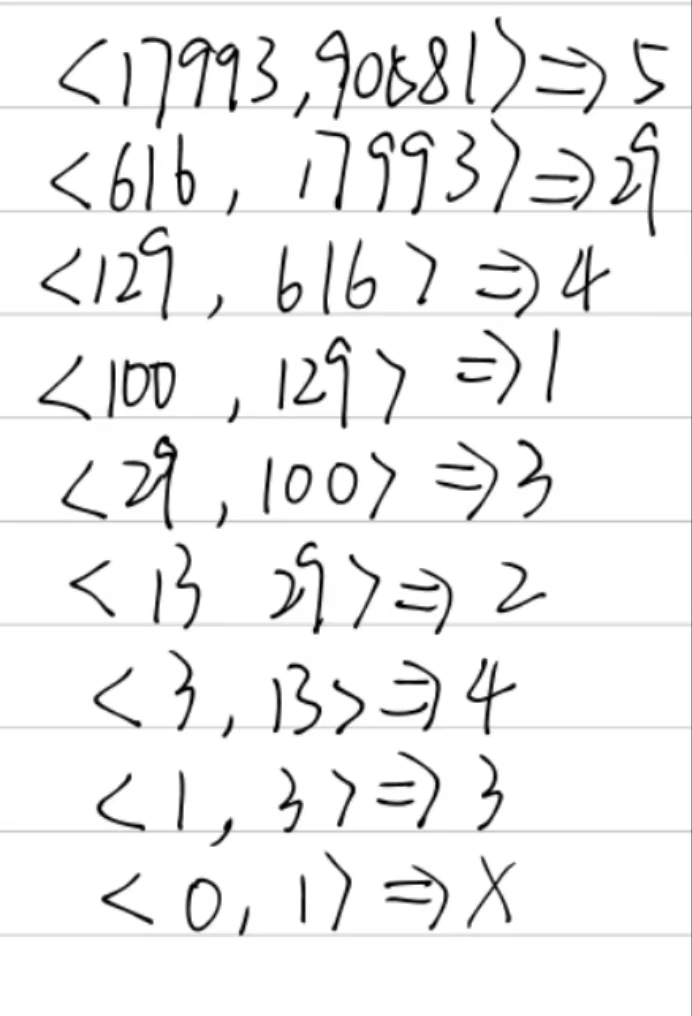 <17993,90581>⇒5
<616, 17993>⇒29
<129, 616>⇒4
<100, 129>⇒1
<29, 100>⇒3
<13 29>⇒2
<3, 13>⇒4
<1, 3>⇒3
<0, 1>⇒X